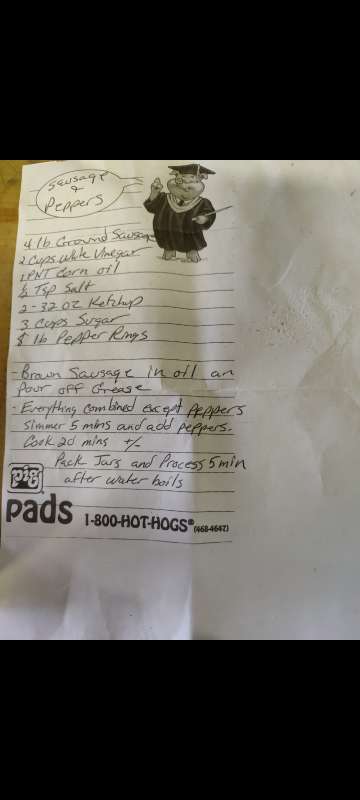 Sausage
&
Peppers
4 lb Ground Sausage
2 Cups White Vinegar
1 PNT Corn oil
½ Tsp Salt
2 - 32 oz Ketchup
3 Cups Sugar
lb Pepper Rings
- Brown Sausage in oil an
Pour off Grease
- Everything combined except peppers
Simmer 5 mins and add peppers.
Cook 20 mins +/-
Pack Jars and Process 5 min
after water boils
pig
pads 1-800-HOT-HOGS® (468-4647)